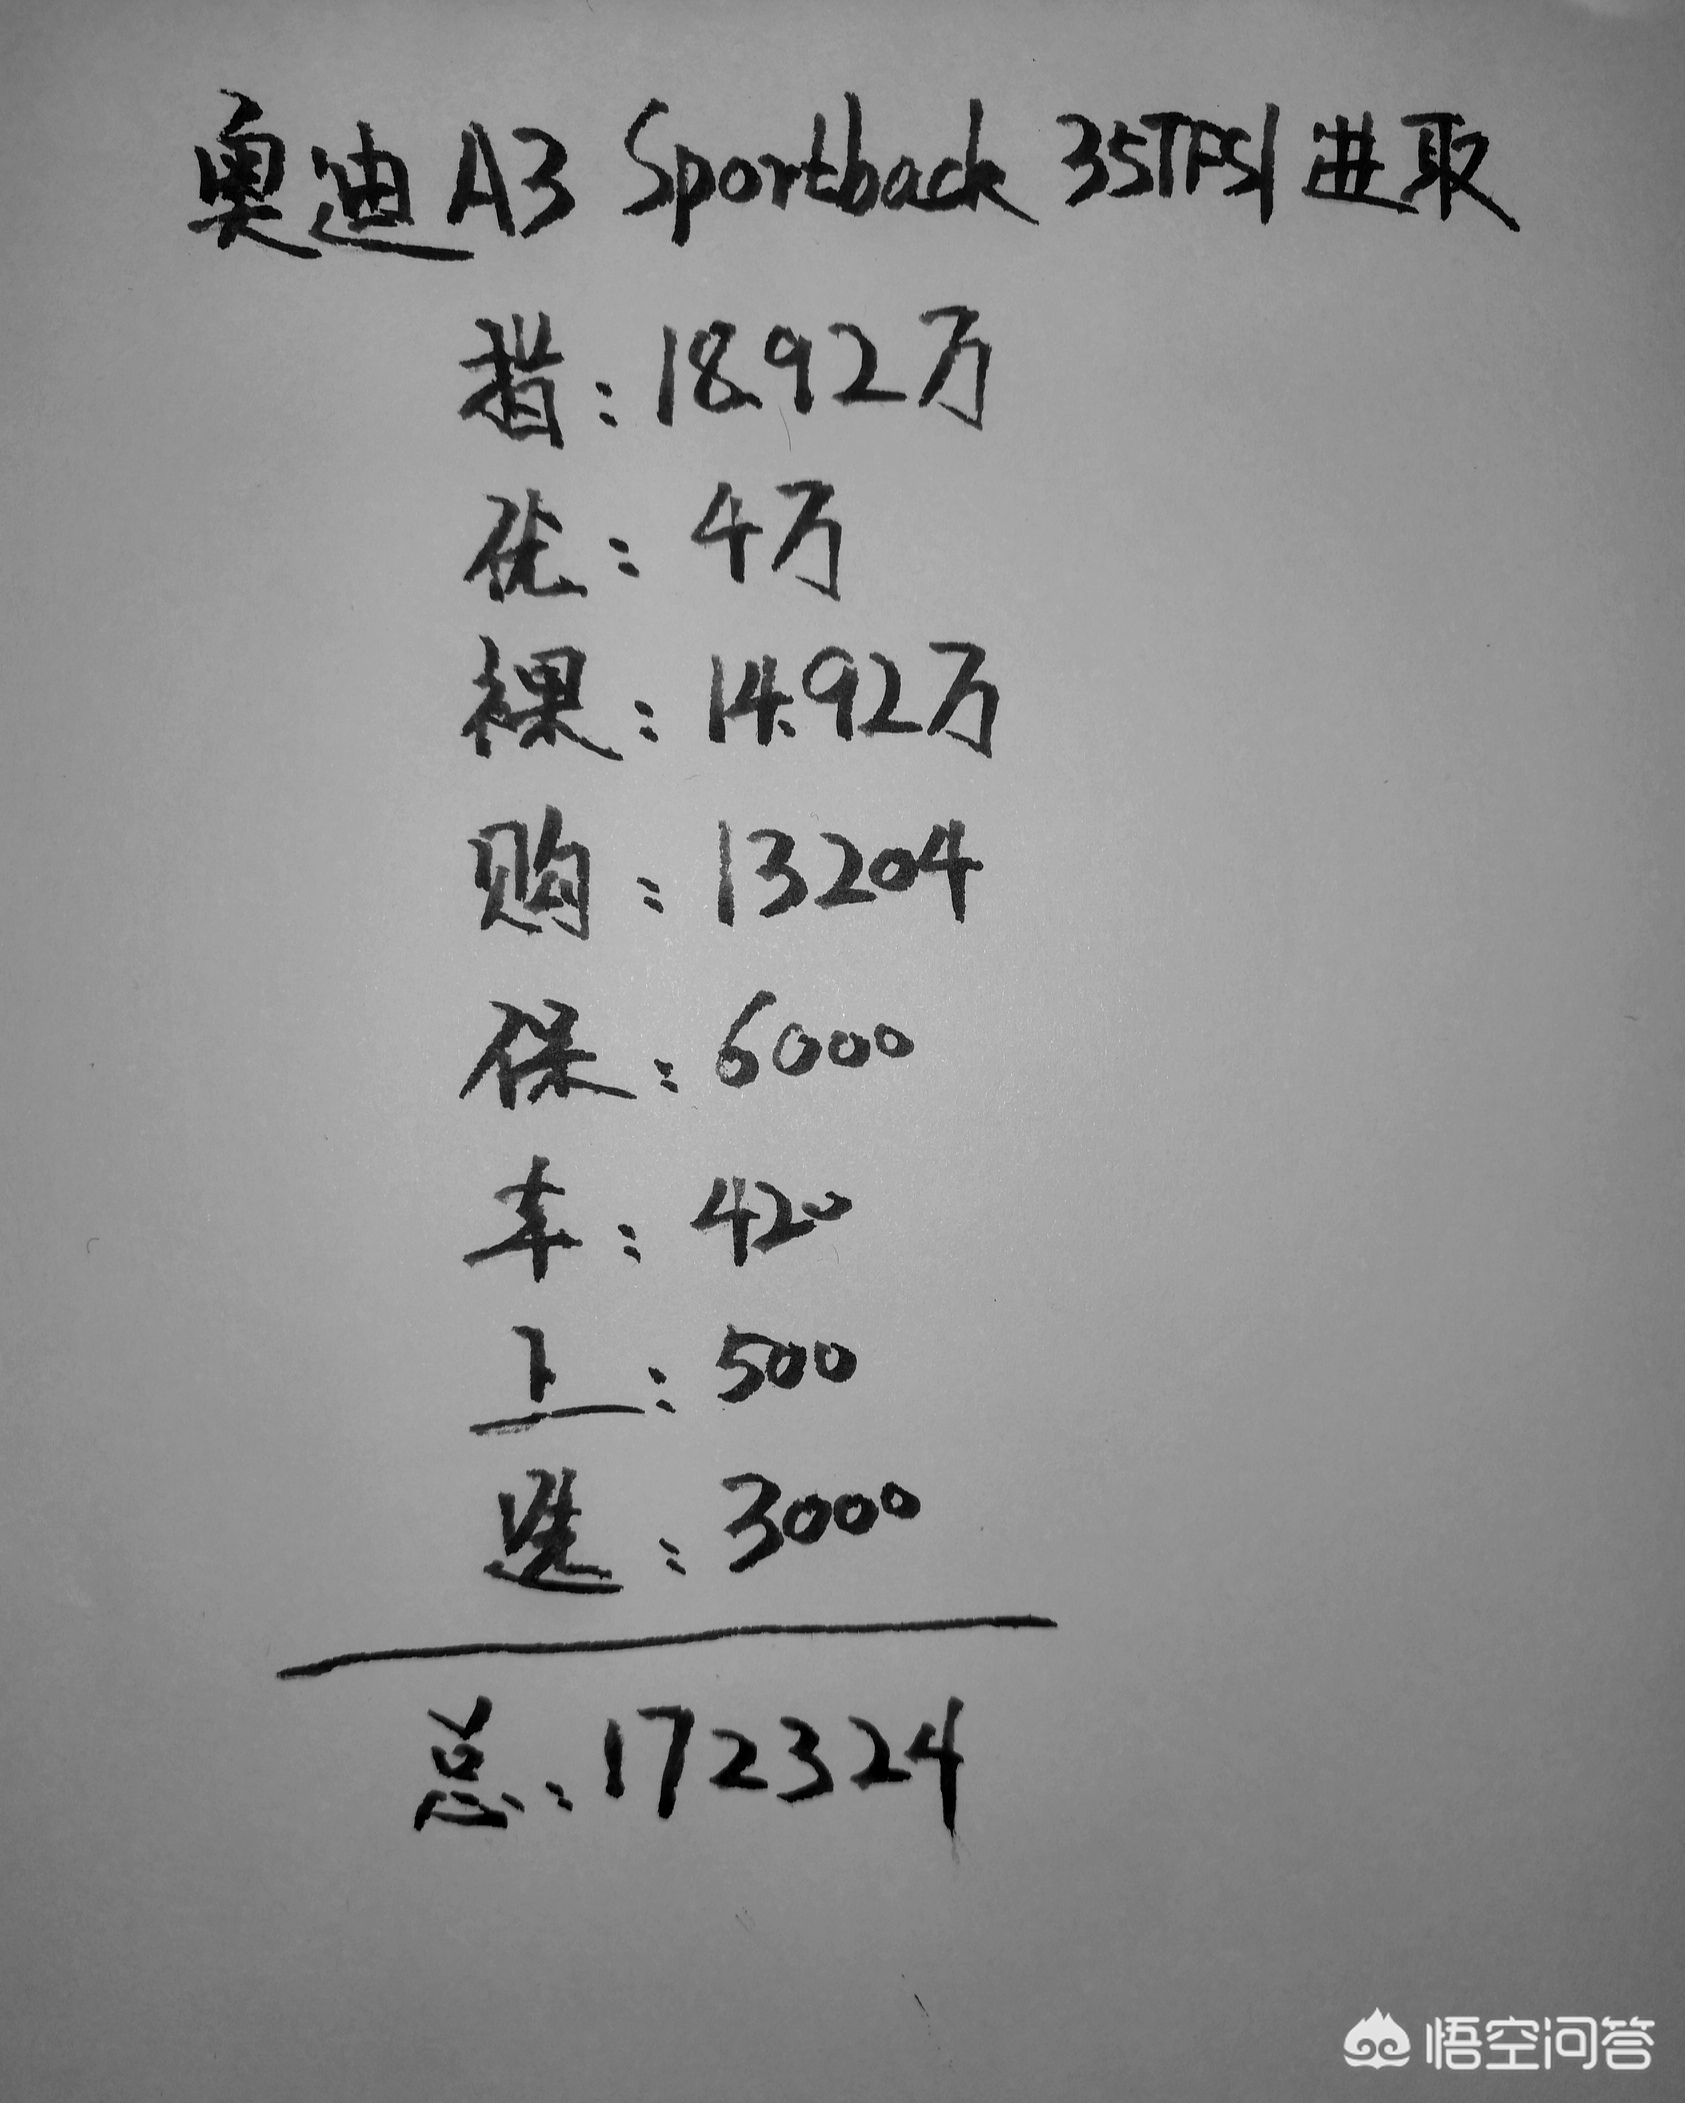 奥迪 A3 Sportback 35TFSI 进取
指：18.92万
优：4万
裸：14.92万
购：13204
保：6000
车：420
上：500
选：3000
总：172324
悟空问答